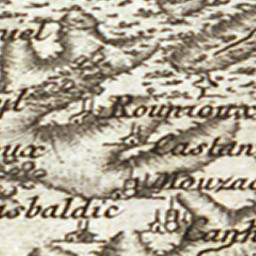 uel
yl
Rounioux
oux
Castan
Mouzac
asbaldic
Canh